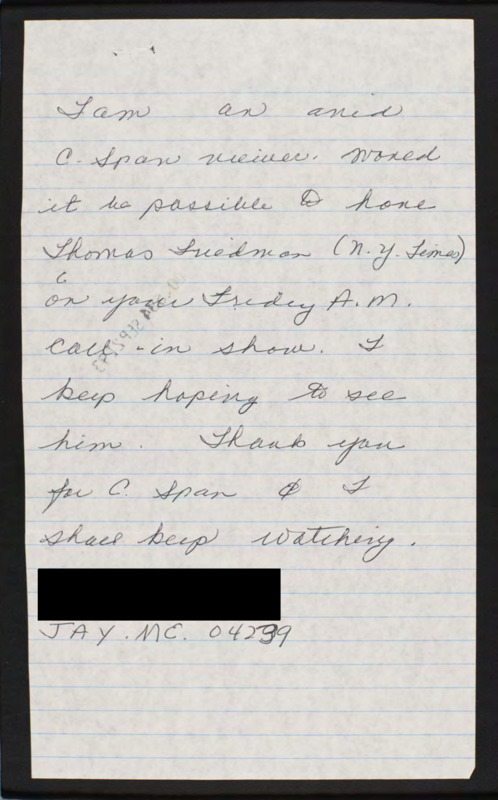 I am an avid
C-Span viewer. Would
it be possible to have
Thomas Friedman (N.Y. Times)
on your Friday A.M.
call-in show. I
keep hoping to see
him. Thank you
for C-Span & I
shall keep watching.
JAY. ME. 04239